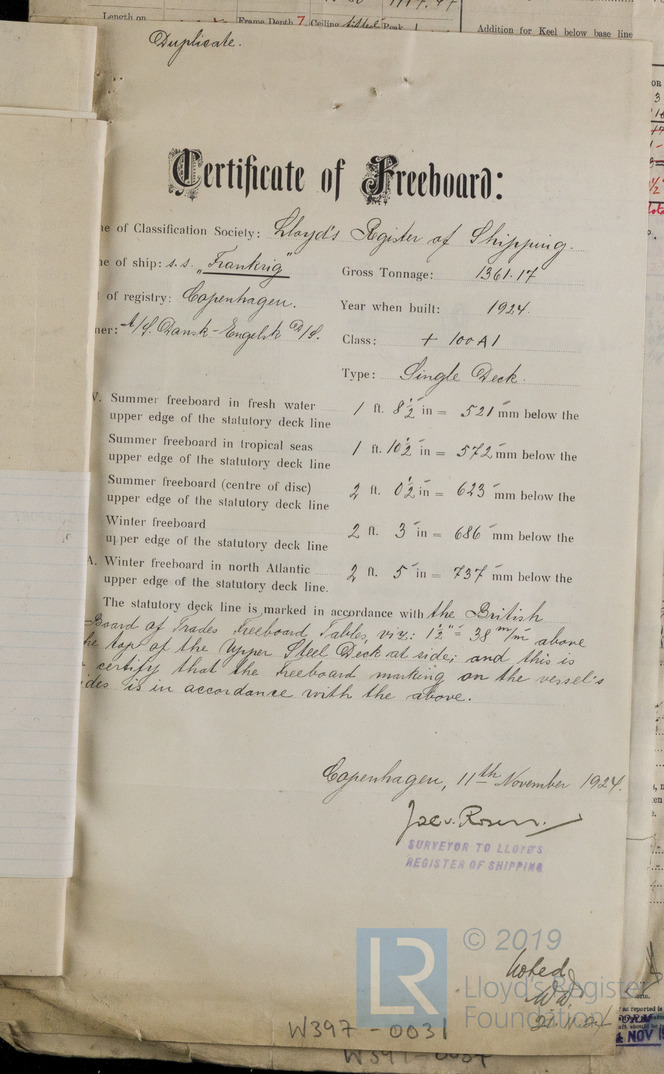 Length on Frame Depth 7 Ceiling fitted Peak
Addition for Keel below base line
Duplicate.
Certificate of Freeboard:
e of Classification Society: Lloyd's Register of Shipping.
e of ship: s.s. "Frankrig"
Gross Tonnage: 1361.17
of registry: Copenhagen.
Year when built: 1924.
ner: A/S. Dansk-Engelsk D/S.
Class: + 100 A1
Type: Single Deck.
Summer freeboard in fresh water
upper edge of the statutory deck line
1 ft. 8½ in = 521 mm below the
Summer freeboard in tropical seas
upper edge of the statutory deck line
1 ft. 10½ in = 572 mm below the
Summer freeboard (centre of disc)
upper edge of the statutory deck line
2 ft. 0½ in = 623 mm below the
Winter freeboard
upper edge of the statutory deck line
2 ft. 3 in = 686 mm below the
A. Winter freeboard in north Atlantic
upper edge of the statutory deck line.
2 ft. 5 in = 737 mm below the
The statutory deck line is marked in accordance with the British
Board of Trades Freeboard Tables, viz: 1½" = 38 m/m above
he top of the Upper Steel Deck at side; and this is
certify that the Freeboard marking on the vessel's
ides is in accordance with the above.
Copenhagen, 11th November 1924.
SURVEYOR TO LLOYD'S
REGISTER OF SHIPPING
© 2019
LR
Lloyd's Register
Foundation
Noted
W397-0031
NOV